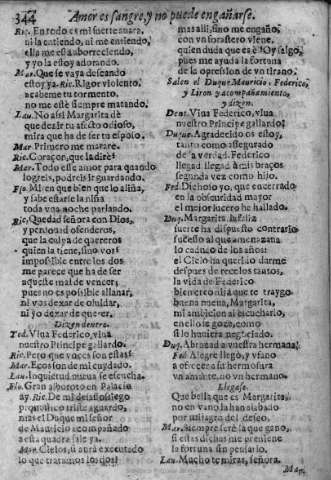 344 Amor es sangre, y no puede engañarse.
Ric. En todo es mi suerte auara,
ni la entiendo, ni me entiendo,
ella me està aborreciendo,
y yo la estoy adorando.
Mar. Que se vaya deseando
estoy ya. Ric. Rigor violento,
acabeme tu tormento,
no me estè siempre matando.
Lau. No assi Margarita dè
que dezir tu assido odioso,
mira que ha de ser tu esposo.
Mar. Primero me matarè.
Ric. Coraçon, que la dirè?
Mar. Todo el amor para quando
logreis, podreis ir guardando.
Flo. Mi en que bien que lo aliña,
y sabe estarse la niña
toda vna noche parlando.
Ric. Quedad señora con Dios,
y perdonad ofenderos,
que la culpa de quereros
quien la tiene, sino vos?
impossible entre los dos
me parece que ha de ser
aqueste mal de vencer;
pues no es possible allanar,
ni vos dexar de oluidar,
ni yo dexar de querer.
Dizen dentro.
Tod. Viua Federico, viua
nuestro Principe gallardo.
Ric. Pero que vozes son estas?
Mar. Ecos son de mi cuydado.
Lau. Inquietud nueua se escucha.
Flo. Gran alboroto en Palacio
ay. Ric. De mi desassosiego
pronostico triste aguardo,
mas el Duque mi señor
de Mauricio acompañado
a esta quadra sale ya.
Mar. Cielos, si aurà executado
lo que tratamos los dos?
mas assi, sino me engaño,
con vn forastero viene,
quien duda que es èl? Oy salgo,
pues me ayuda la fortuna
de la opresion de vn tirano.
Salen el Duque, Mauricio, Federico,
y Liron, y acompañamiento,
y dizen.
Dent. Viua Federico, viua
nuestro Principe gallardo.
Duque. Agradecido os estoy,
tanto como assegurado
de la verdad. Federico,
llegad, llegad à mis braços
segunda vez como hijo.
Fed. Dichoso yo, que encerrado
en la obscuridad mayor
el mejor luzero he hallado.
Duq. Margarita,
fuerte ha dispuesto contrario
sucesso al que amenazaua
lo caduco de los años:
el Cielo ha querido darme
despues de rezelos tantos,
la vida de Federico
bien merecida que te traygo
buena nueua, Margarita,
mi ambicion al escucharlo,
en ello te goze, como
si lo huuiera negociado.
Duq. Abraçad a vuestra hermana.
Fed. Alegre llego, y vfano
a ofreceros su hermosura
vn amante, no vn hermano.
Llegase.
Que bella que es Margarita,
no en vano la han alabado
por milagro del desseo.
Mar. Siempre serè la que gano,
si estas dichas me preuiene
la fortuna sin pensarlo.
Lau. Mucho te miras, señora.
Mar.